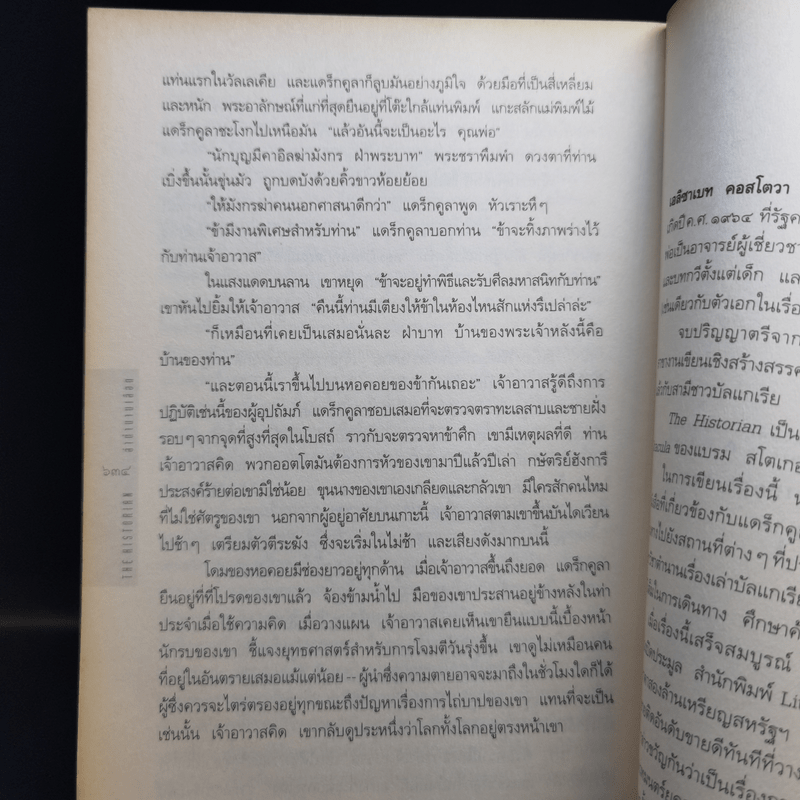 แท่นแรกในวัลเลเคีย และแดร็กคูลาก็ลูบมันอย่างภูมิใจ ด้วยมือที่เป็นสี่เหลี่ยม
และหนัก พระอาลักษณ์ที่แก่ที่สุดยืนอยู่ที่โต๊ะใกล้แท่นพิมพ์ แกะสลักแม่พิมพ์ไม้
แดร็กคูลาชะโงกไปเหนือมัน “แล้วอันนี้จะเป็นอะไร คุณพ่อ”
“นักบุญมีคาอิลฆ่ามังกร ฝ่าพระบาท” พระชราพึมพำ ดวงตาที่ท่าน
เบิ่งขึ้นนั้นขุ่นมัว ถูกบดบังด้วยคิ้วขาวห้อยย้อย
“ให้มังกรฆ่าคนนอกศาสนาดีกว่า” แดร็กคูลาพูด หัวเราะหึๆ
“ข้ามีงานพิเศษสำหรับท่าน” แดร็กคูลาบอกท่าน “ข้าจะทิ้งภาพร่างไว้
กับท่านเจ้าอาวาส”
ในแสงแดดบนลาน เขาหยุด “ข้าจะอยู่ทำพิธีและรับศีลมหาสนิทกับท่าน”
เขาหันไปยิ้มให้เจ้าอาวาส “คืนนี้ท่านมีเตียงให้ข้าในห้องไหนสักแห่งรึเปล่าล่ะ”
“ก็เหมือนที่เคยเป็นเสมอนั่นละ ฝ่าบาท บ้านของพระเจ้าหลังนี้คือ
บ้านของท่าน”
“และตอนนี้เราขึ้นไปบนหอคอยของข้ากันเถอะ” เจ้าอาวาสรู้ดีถึงการ
ปฏิบัติเช่นนี้ของผู้อุปถัมภ์ แดร็กคูลาชอบเสมอที่จะตรวจตราทะเลสาบและชายฝั่ง
รอบๆ จากจุดที่สูงที่สุดในโบสถ์ ราวกับจะตรวจหาข้าศึก เขามีเหตุผลที่ดี ท่าน
เจ้าอาวาสคิด พวกออตโตมันต้องการหัวของเขามาปีแล้วปีเล่า กษัตริย์ฮังการี
ประสงค์ร้ายต่อเขามิใช่น้อย ขุนนางของเขาเองเกลียดและกลัวเขา มีใครสักคนไหม
ที่ไม่ใช่ศัตรูของเขา นอกจากผู้อยู่อาศัยบนเกาะนี้ เจ้าอาวาสตามเขาขึ้นบันไดเวียน
ไปช้าๆ เตรียมตัวตีระฆัง ซึ่งจะเริ่มในไม่ช้า และเสียงดังมากบนนี้
โดมของหอคอยมีช่องยาวอยู่ทุกด้าน เมื่อเจ้าอาวาสขึ้นถึงยอด แดร็กคูลา
ยืนอยู่ที่ที่โปรดของเขาแล้ว จ้องข้ามน้ำไป มือของเขาประสานอยู่ข้างหลังในท่า
ประจำเมื่อใช้ความคิด เมื่อวางแผน เจ้าอาวาสเคยเห็นเขายืนแบบนี้เบื้องหน้า
นักรบของเขา ชี้แจงยุทธศาสตร์สำหรับการโจมตีวันรุ่งขึ้น เขาดูไม่เหมือนคน
ที่อยู่ในอันตรายเสมอแม้แต่น้อย -- ผู้นำซึ่งความตายอาจจะมาถึงในชั่วโมงใดก็ได้
ผู้ซึ่งควรจะไตร่ตรองอยู่ทุกขณะถึงปัญหาเรื่องการไถ่บาปของเขา แทนที่จะเป็น
เช่นนั้น เจ้าอาวาสคิด เขากลับดูประหนึ่งว่าโลกทั้งโลกอยู่ตรงหน้าเขา
THE HISTORIAN ๖๓๔ ล่าตำนานเลือด
เอลิซาเบท คอสโตวา
เกิดปี ค.ศ. ๑๙๖๔ ที่รัฐค
พ่อเป็นอาจารย์ผู้เชี่ยวชา
และบทกวีตั้งแต่เด็ก และ
เช่นเดียวกับตัวเอกในเรื่อ
จบปริญญาตรีจาก
งานเขียนเชิงสร้างสรรค
กับสามีชาวบัลแกเรีย
The Historian เป็น
ของแบรม สโตเกอ
ในการเขียนเรื่องนี้
ที่เกี่ยวข้องกับแดร็กคู
ไปยังสถานที่ต่างๆ ที่ป
ตำนานเรื่องเล่าบัลแกเรี
ในการเดินทาง ศึกษาค้
เรื่องนี้เสร็จสมบูรณ์
ประมูล สำนักพิมพ์ Lit
สองล้านเหรียญสหรัฐฯ
ติดอันดับขายดีทันทีที่วาง
ขวัญกันว่าเป็นเรื่อง